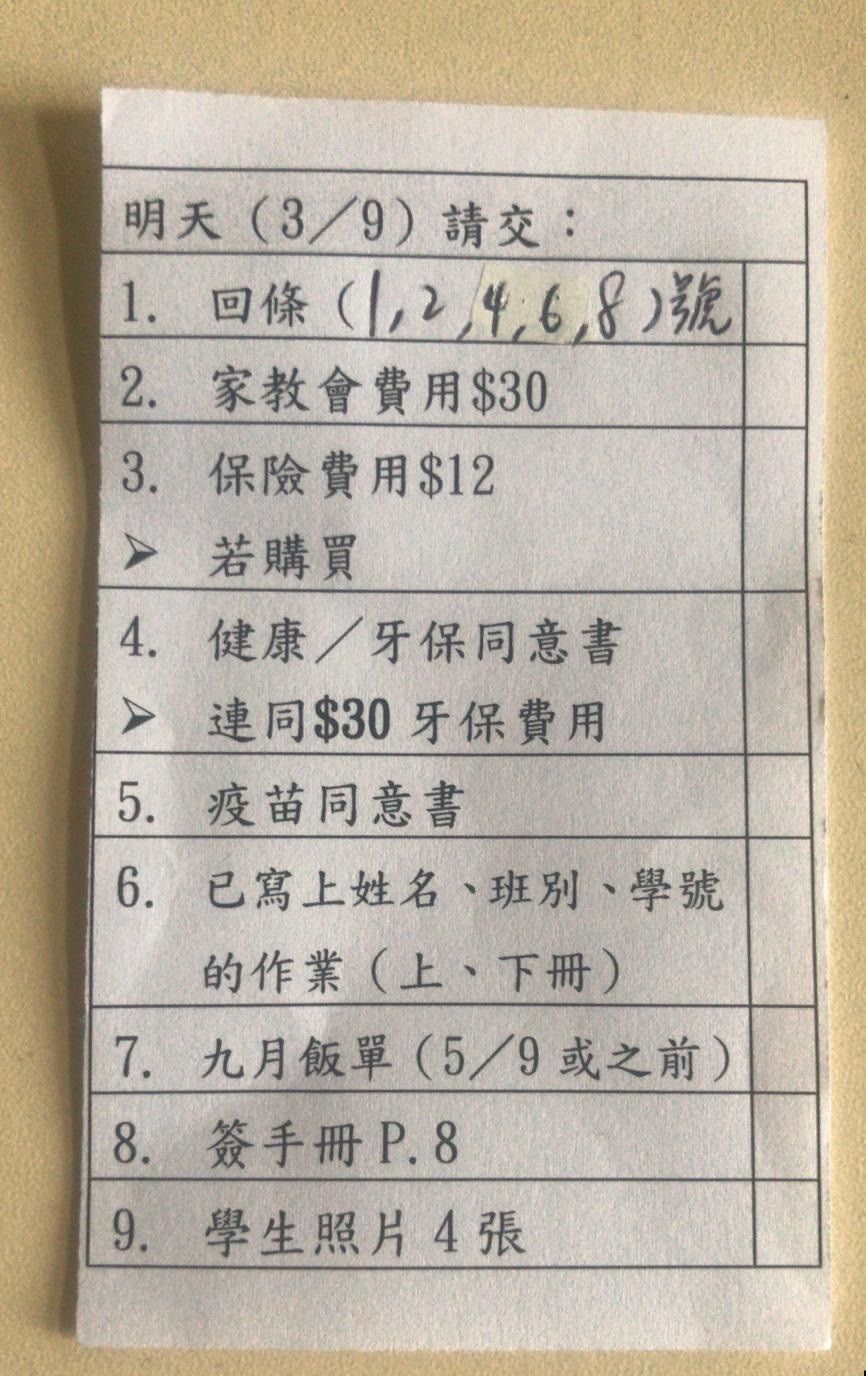 明天（3／9）請交：
1. 回條（1,2,4,6,8）號
2. 家教會費用$30
3. 保險費用$12
➢ 若購買
4. 健康／牙保同意書
➢ 連同$30 牙保費用
5. 疫苗同意書
6. 已寫上姓名、班別、學號
的作業（上、下冊）
7. 九月飯單（5／9 或之前）
8. 簽手冊 P.8
9. 學生照片 4 張